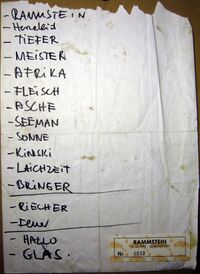 - RAMMSTEIN
- Herzeleid
- TIEFER
- MEISTER
- AFRIKA
- FLEISCH
- ASCHE
- SEEMAN
- SONNE
- KINSKI
- LAICHZEIT
- BRINGER
- RIECHER
- HALLO
- GLAS
RAMMSTEIN
Nr. 0532